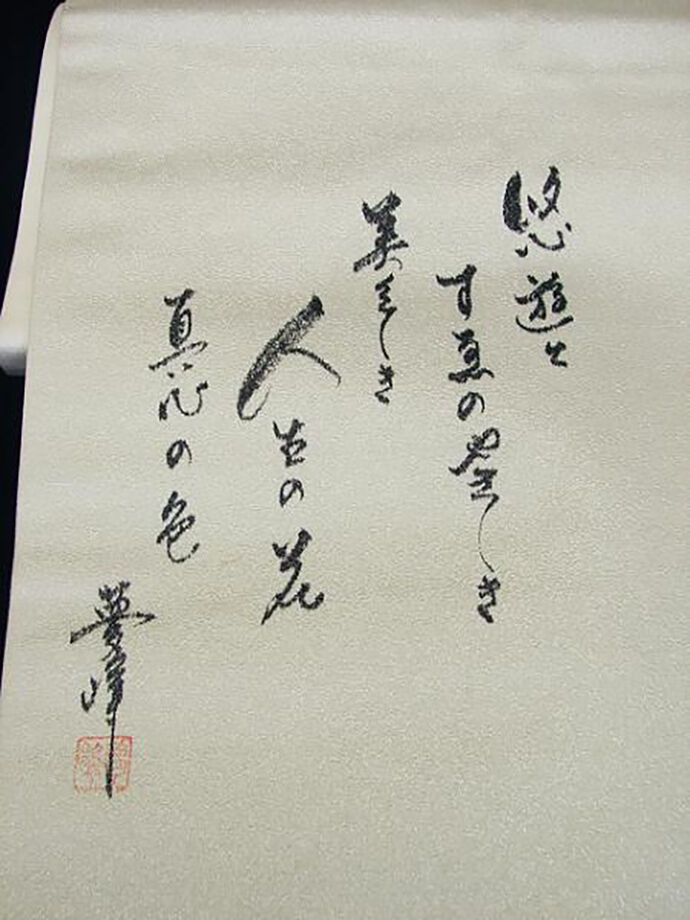 悠遊と
すゑの楽しき
美しき
人生の花
真心の色
夢峰